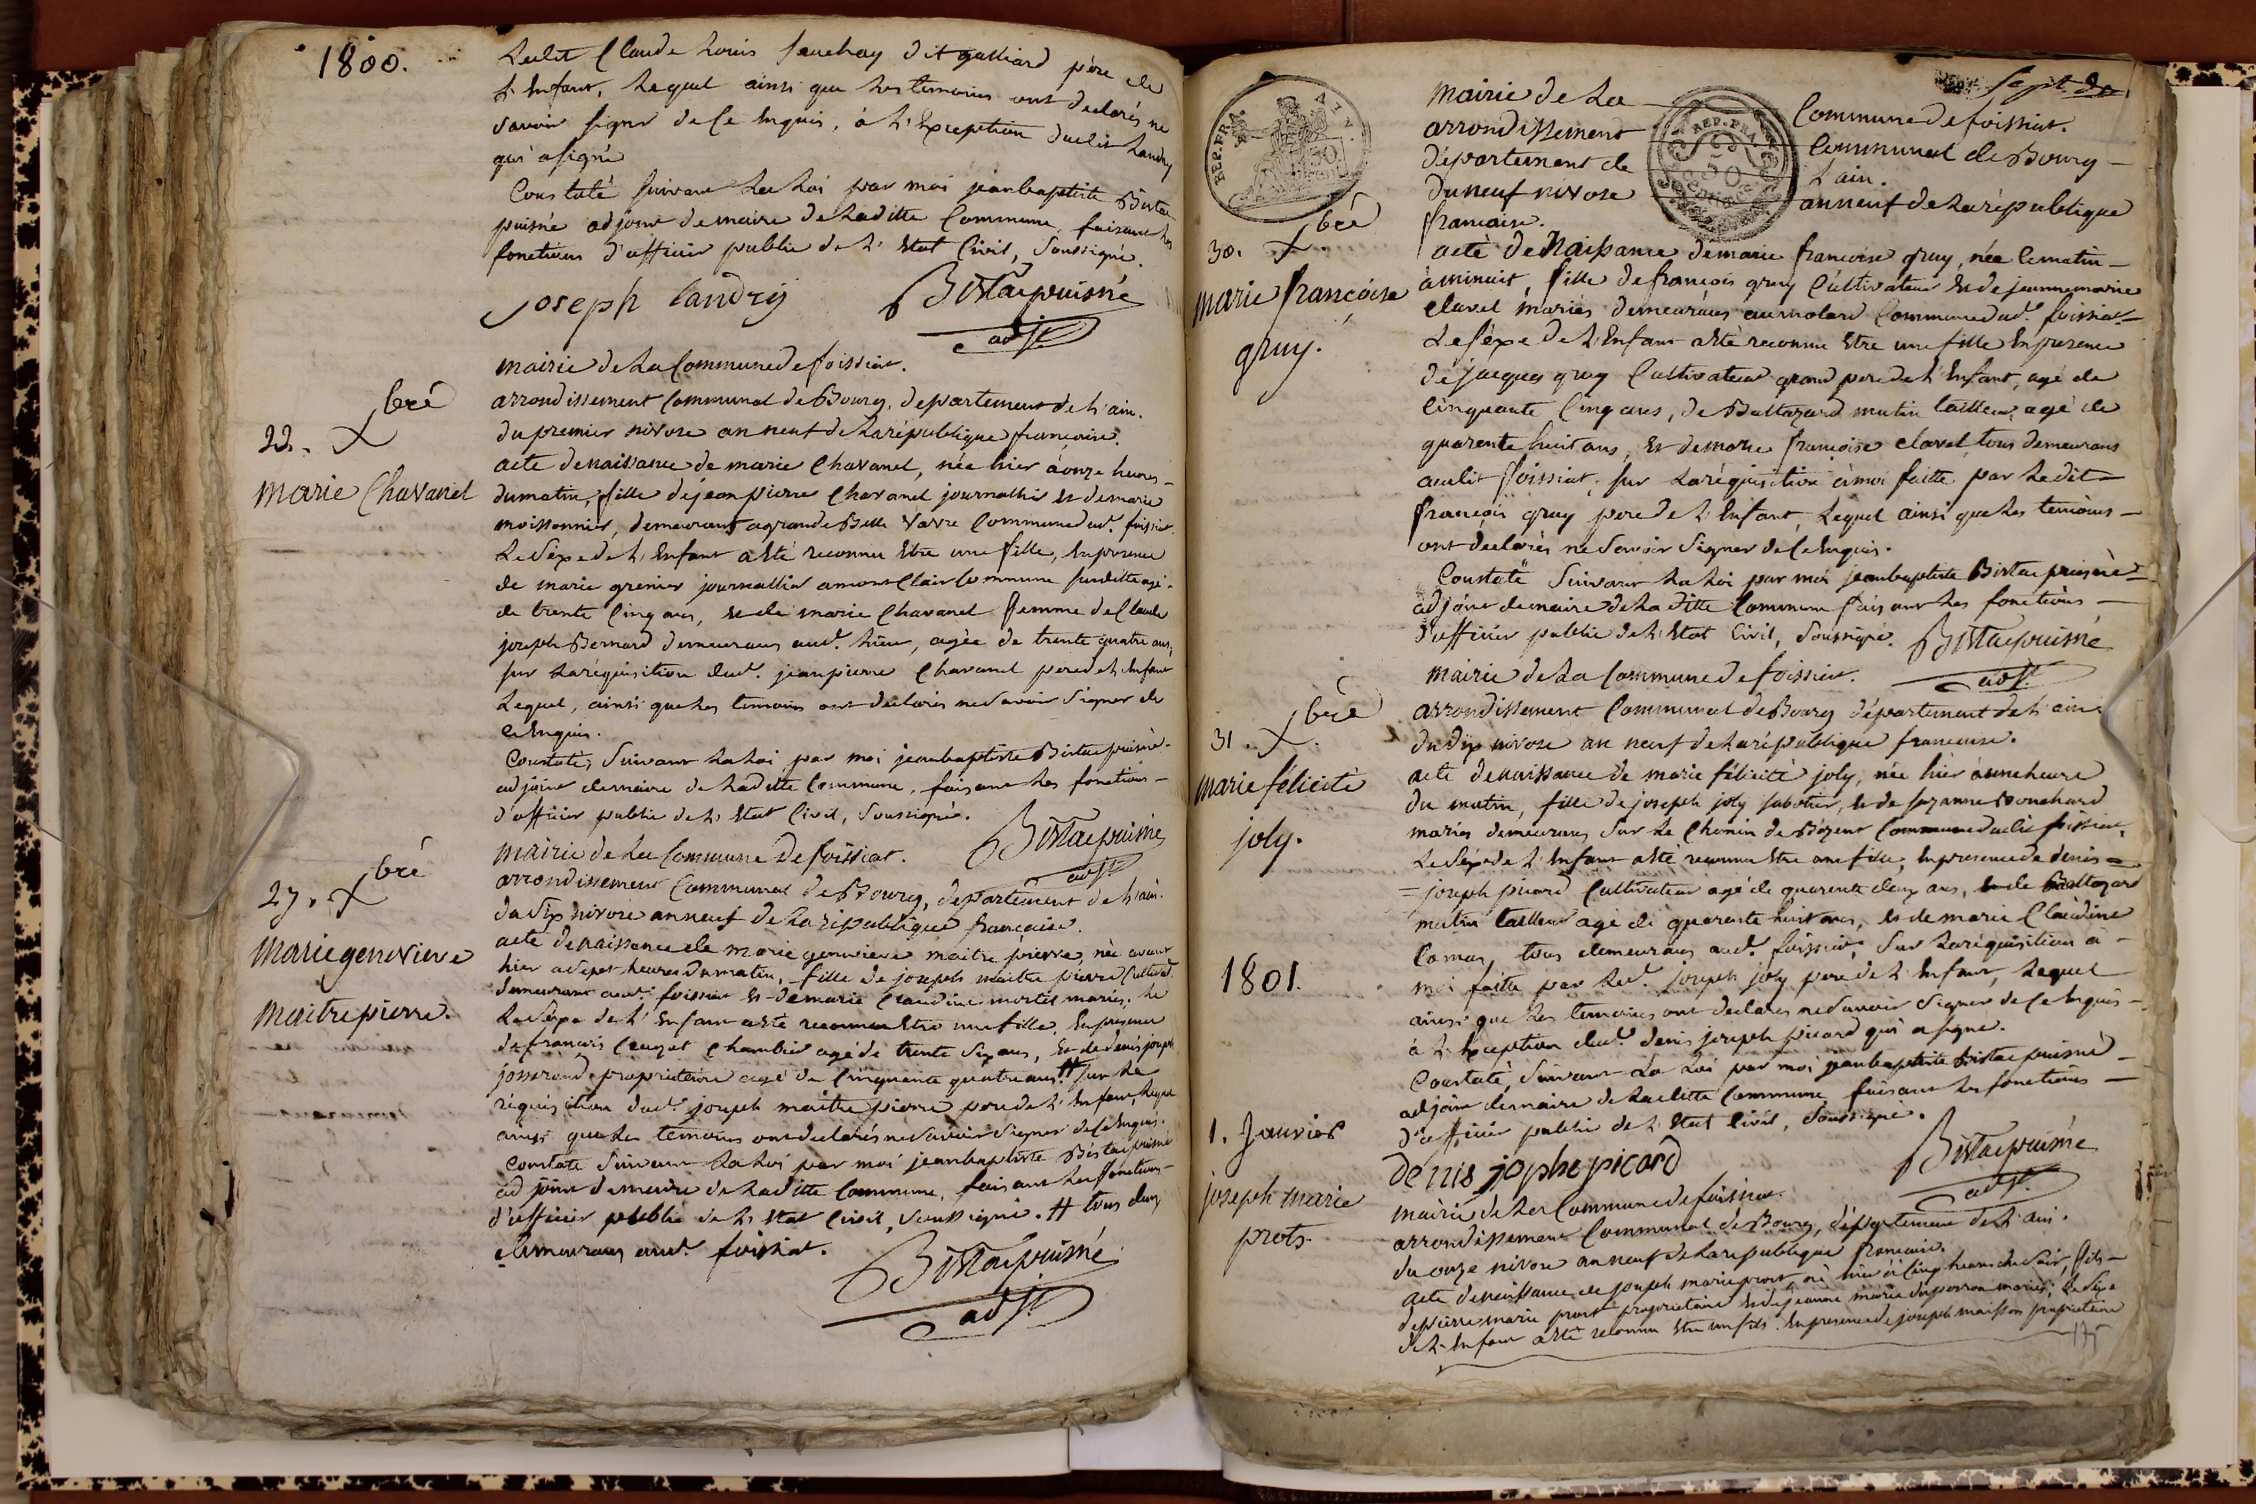 1800.
Ledit Claude Louis dit galliard père de
L'Enfant, Lequel ainsi que Les temoins ont declarés ne
savoir signer de ce Enquis, à L'Exception dudit Landry
qui a signé
Constaté suivant La Loi par moi jean baptiste Bistac
puisné adjoint de maire de Laditte Commune, faisant les
fonctions d'officier public de L'Etat Civil, Soussigné.
joseph Landry Bistac puisné
adjt.
mairie de La Commune de foissiat.
arrondissement Communal de Bourg, departement de L'ain.
22. Xbre
du premier nivose an neuf de La république françoise.
marie Chavanel
acte de naissance de marie Chavanel, née hier à onze heures
du matin, fille de jean pierre Chavanel journallier et de marie
moissonnier, demeurant a grande Belle Varre Commune dud. foissiat
Le Séxe de L'Enfant a Eté reconnu Etre une fille, En presence
de marie grenier journallier a mont Clair Commune susditte agé
de trente Cinq ans, et de marie Chavanel femme de Claude
joseph Bernard demeurans aud. Lieu, agée de trente quatre ans,
sur La réquisition dud. jean pierre Chavanel pere de L'Enfant
Lequel, ainsi que Les temoins ont declarés ne Savoir Signer de
ce Enquis.
Constaté, Suivant La Loi, par moi jean baptiste Bistac puisné
adjoint de maire de Laditte Commune, faisant Les fonctions
d'officier public de L'Etat Civil, Soussigné.
Bistac puisné
adjt
mairie de La Commune de foissiat.
arrondissement Communal de Bourg, departement de L'ain.
27. Xbre
du Six nivose an neuf de La république françoise.
marie genevieve
maitrepierre.
acte de naissance de marie genevieve maitre pierre, née avant
hier a Sept heures du matin, fille de joseph maitre pierre Cultivat.
demeurant aud. foissiat et de marie Claudine mortel mariés. Le
Le Séxe de L'Enfant a Eté reconnu Etre une fille, En presence
de françois Chambier agé de trente Six ans, Et de denis joseph
josserand proprietaire agé de Cinquante quatre ans # sur La
réquisition dud. joseph maitre pierre pere de L'Enfant, Lequel
ainsi que Les temoins ont declarés ne Savoir Signer de Ce Enquis.
Constaté Suivant La Loi par moi jean baptiste Bistac puisné
adjoint de maire de Laditte Commune, faisant Les fonctions
d'officier public de L'Etat Civil, Soussigné. # tous deux
demeurans aud. foissiat.
Bistac puisné
adjt.
Sept
REP. FRA
REP. FRA
50
mairie de La Commune de foissiat.
arrondissement Communal de Bourg
département de L'ain.
du neuf nivose an neuf de La république
francaise.
30. Xbre
marie françoise
gruy.
acte de Naissance de marie francoise gruy, née Ce matin
à minuit, fille de francois gruy Cultivateur Et de jeanne marie
clavel mariés demeurans au molard Commune dud. foissiat
Le Séxe de L'Enfant a Eté reconnu Etre une fille En presence
de jacques gruy Cultivateur grand pere de L'Enfant, agé de
Cinquante Cinq ans, de Baltazard mutin tailleur agé de
quarente huit ans, Et de marie françoise clavel tous demeurans
audit foissiat, sur La réquisition à moi faitte par Ledit
françois gruy pere de L'Enfant, Lequel ainsi que Les temoins
ont declarés ne Savoir Signer de Ce Enquis.
Constaté Suivant La Loi par moi jean baptiste Bistac puisné
adjoint de maire de La ditte Commune faisant Les fonctions
d'officier public de L'Etat Civil, Soussigné. Bistac puisné
adjt.
mairie de La Commune de foissiat.
arrondissement Communal de Bourg département de L'ain
31. Xbre
du dix nivose an neuf de La république francaise.
marie félicité
joly.
acte de naissance de marie félicité joly, née hier à une heure
du matin, fille de joseph joly sabotier, Et de suzanne Bouchard
mariés demeurans Sur Le Chemin de Bézent Commune dudit foissiat,
Le Séxe de L'Enfant a Eté reconnu Etre une fille, En presence de denis
joseph picard Cultivateur agé de quarente deux ans, de Baltazard
mutin tailleur agé de quarente huit ans, Et de marie Claudine
Comas, tous demeurans aud. foissiat, Sur La réquisition à
moi faitte par Led. joseph joly pere de L'Enfant, Lequel
1801.
ainsi que Les temoins ont declarés ne Savoir Signer de Ce Enquis
à L'Exception dud. denis joseph picard qui a signé.
Constaté, Suivant La Loi par moi jean baptiste Bistac puisné
adjoint de maire de Laditte Commune faisant Les fonctions
d'officier public de L'Etat Civil, Soussigné.
denis jophe picard Bistac puisné
adjt.
1. Janvier
joseph marie
prots
mairie de La Commune de foissiat.
arrondissement Communal de Bourg, département de L'ain.
du onze nivose an neuf de La republique francaise.
acte de naissance de joseph marie prost, né hier à Cinq heures du Soir, fils
de pierre marie prost proprietaire Et de jeanne marie duperron mariés; Le Séxe
de L'Enfant a Eté reconnu Etre un fils. En presence de joseph maisson proprietaire